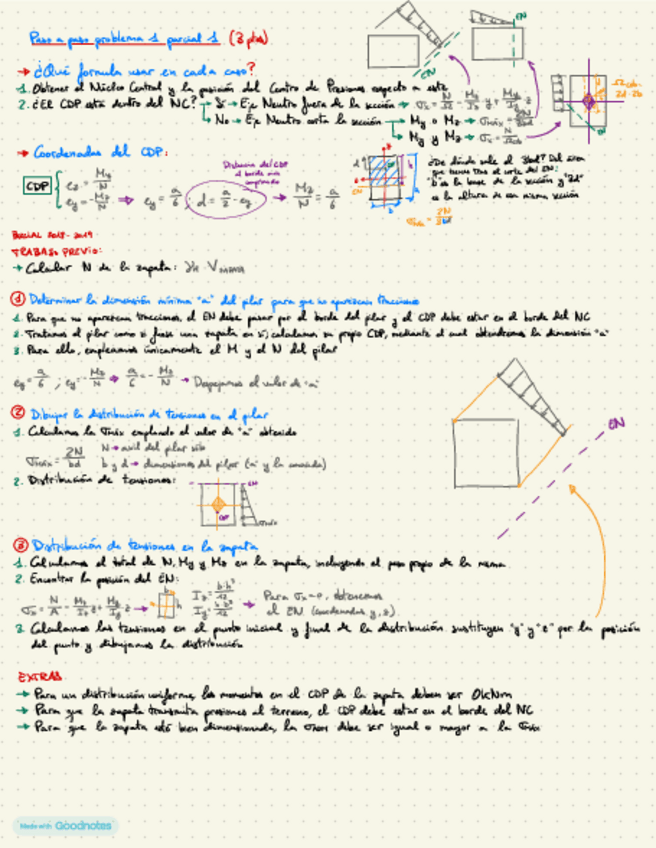 Paso a paso problema 1 parcial 1 (3 ptos)
EN
EN
→ ¿Qué formula usar en cada caso?
1. Obtener el Núcleo Central y la posición del Centro de Presiones respecto a este
2. ¿El CDP está dentro del NC? → Sí → Eje Neutro fuera de la sección → σx = N/A - Mz/Iz y + My/Iy z
No → Eje Neutro corta la sección → My o Mz → σmáx = 2N/3bd
My y Mz → σx = N
EN
→ Coordenadas del CDP:
Distancia del CDP al borde más comprimido
CDP { ez = My/N
ey = -Mz/N → ey = a/6 ; d = a/2 - ey → Mz/N = a/6
¿De dónde sale el 3bd? Del área
que tienes tras el corte del EN:
b es la base de la sección y "3d"
es la altura de esa misma sección
σmáx = 2N/3bd
PARCIAL 2018-2019
TRABAJO PREVIO:
→ Calcular N de la zapata: γh · Vzapata
① Determinar la dimensión mínima "a" del pilar para que no aparezcan tracciones
1. Para que no aparezcan tracciones, el EN debe pasar por el borde del pilar y el CDP debe estar en el borde del NC
2. Tratamos el pilar como si fuese una zapata en sí, calculamos su propio CDP, mediante el cual obtendremos la dimensión "a"
3. Para ello, empleamos únicamente el M y el N del pilar
ey = a/6 ; ey = -Mz/N → a/6 = -Mz/N → Despejamos el valor de "a"
② Dibujar la distribución de tensiones en el pilar
1. Calculamos la σmáx empleando el valor de "a" obtenido
σmáx = 2N/bd N → axil del pilar sólo
b y d → dimensiones del pilar (a y la conocida)
2. Distribución de tensiones:
EN
CDP
σmáx
EN
③ Distribución de tensiones en la zapata
1. Calculamos el total de N, My y Mz en la zapata, incluyendo el peso propio de la misma
2. Encontrar la posición del EN:
σx = N/A - Mz/Iz y + My/Iy z → Iz = b·h³/12
Iy = h·b³/12 → Para σx = 0, obtenemos
el EN (coordenadas y, z)
3. Calculamos las tensiones en el punto inicial y final de la distribución sustituyen "y" y "z" por la posición
del punto y dibujamos la distribución
EXTRAS
→ Para un distribución uniforme, los momentos en el CDP de la zapata deben ser 0kNm
→ Para que la zapata transmita presiones al terreno, el CDP debe estar en el borde del NC
→ Para que la zapata esté bien dimensionada, la σadm debe ser igual o mayor a la σmáx
Made with Goodnotes